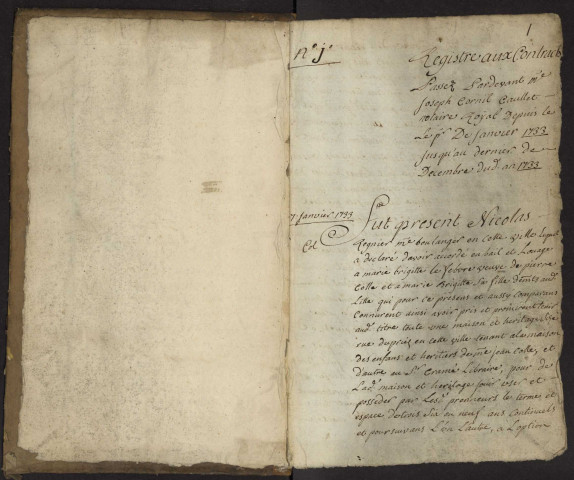 1
n.º 1.er
Registre aux Contracts
Passez Pardevant m.e
Joseph Cornil Caullet
notaire Royal Depuis le
le p.r De Janvier 1733
Jusqu'au dernier de
Decembre dud. an 1733
7 Janvier 1733
Fut present Nicolas
Regnier m.e boulanger en cette ville lequel
a declaré d'avoir accordé en bail et Louage
a marie brigitte le febvre veuve de pierre
Colle et a marie Brigitte sa fille demts aud.
Lille qui pour ce presens et aussy comparans
Connurent ainsi avoir pris et promirent tenir
aud. titre toute une maison et heritage
rue du priez en cette ville tenant a la maison
des enfans et heritiers de jean Colle, et
d'autre au S.r Cramé Libraire, pour de
Lad. maison et heritage jouir user et
posseder par Lesd. preneurs le terme et
espace de trois six ou neuf ans Continuels
et poursuivans L'un L'autre, a L'option